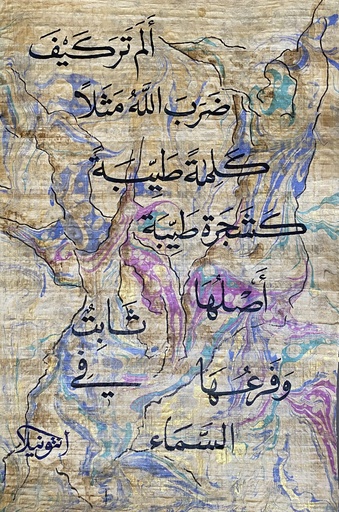 أَلَمْ تَرَ كَيْفَ
ضَرَبَ اللَّهُ مَثَلاً
كَلِمَةً طَيِّبَةً
كَشَجَرَةٍ طَيِّبَةٍ
أَصْلُهَا
ثَابِتٌ
وَفَرْعُهَا فِي
السَّمَاءِ
انتونيلا